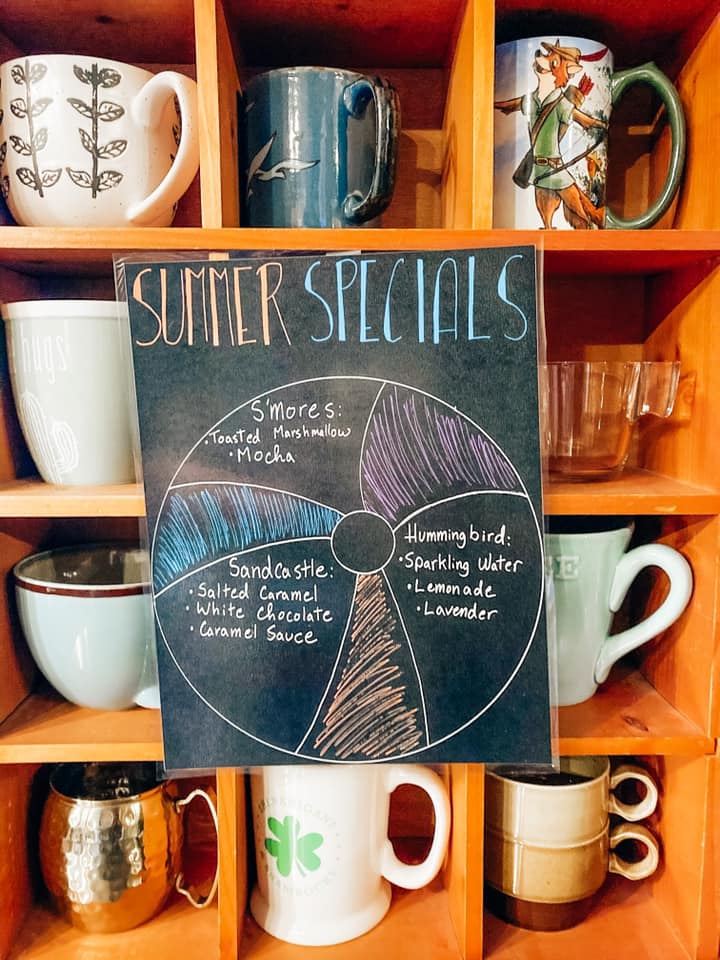 SUMMER SPECIALS
hugs
S'mores:
• Toasted Marshmallow
• Mocha
Hummingbird:
• Sparkling Water
• Lemonade
• Lavender
Sandcastle:
• Salted Caramel
• White Chocolate
• Caramel Sauce